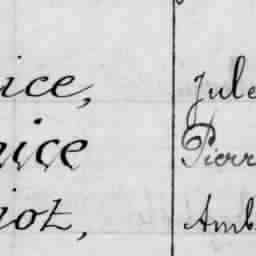 ice, Jule
nice Pierr
iot, Amb